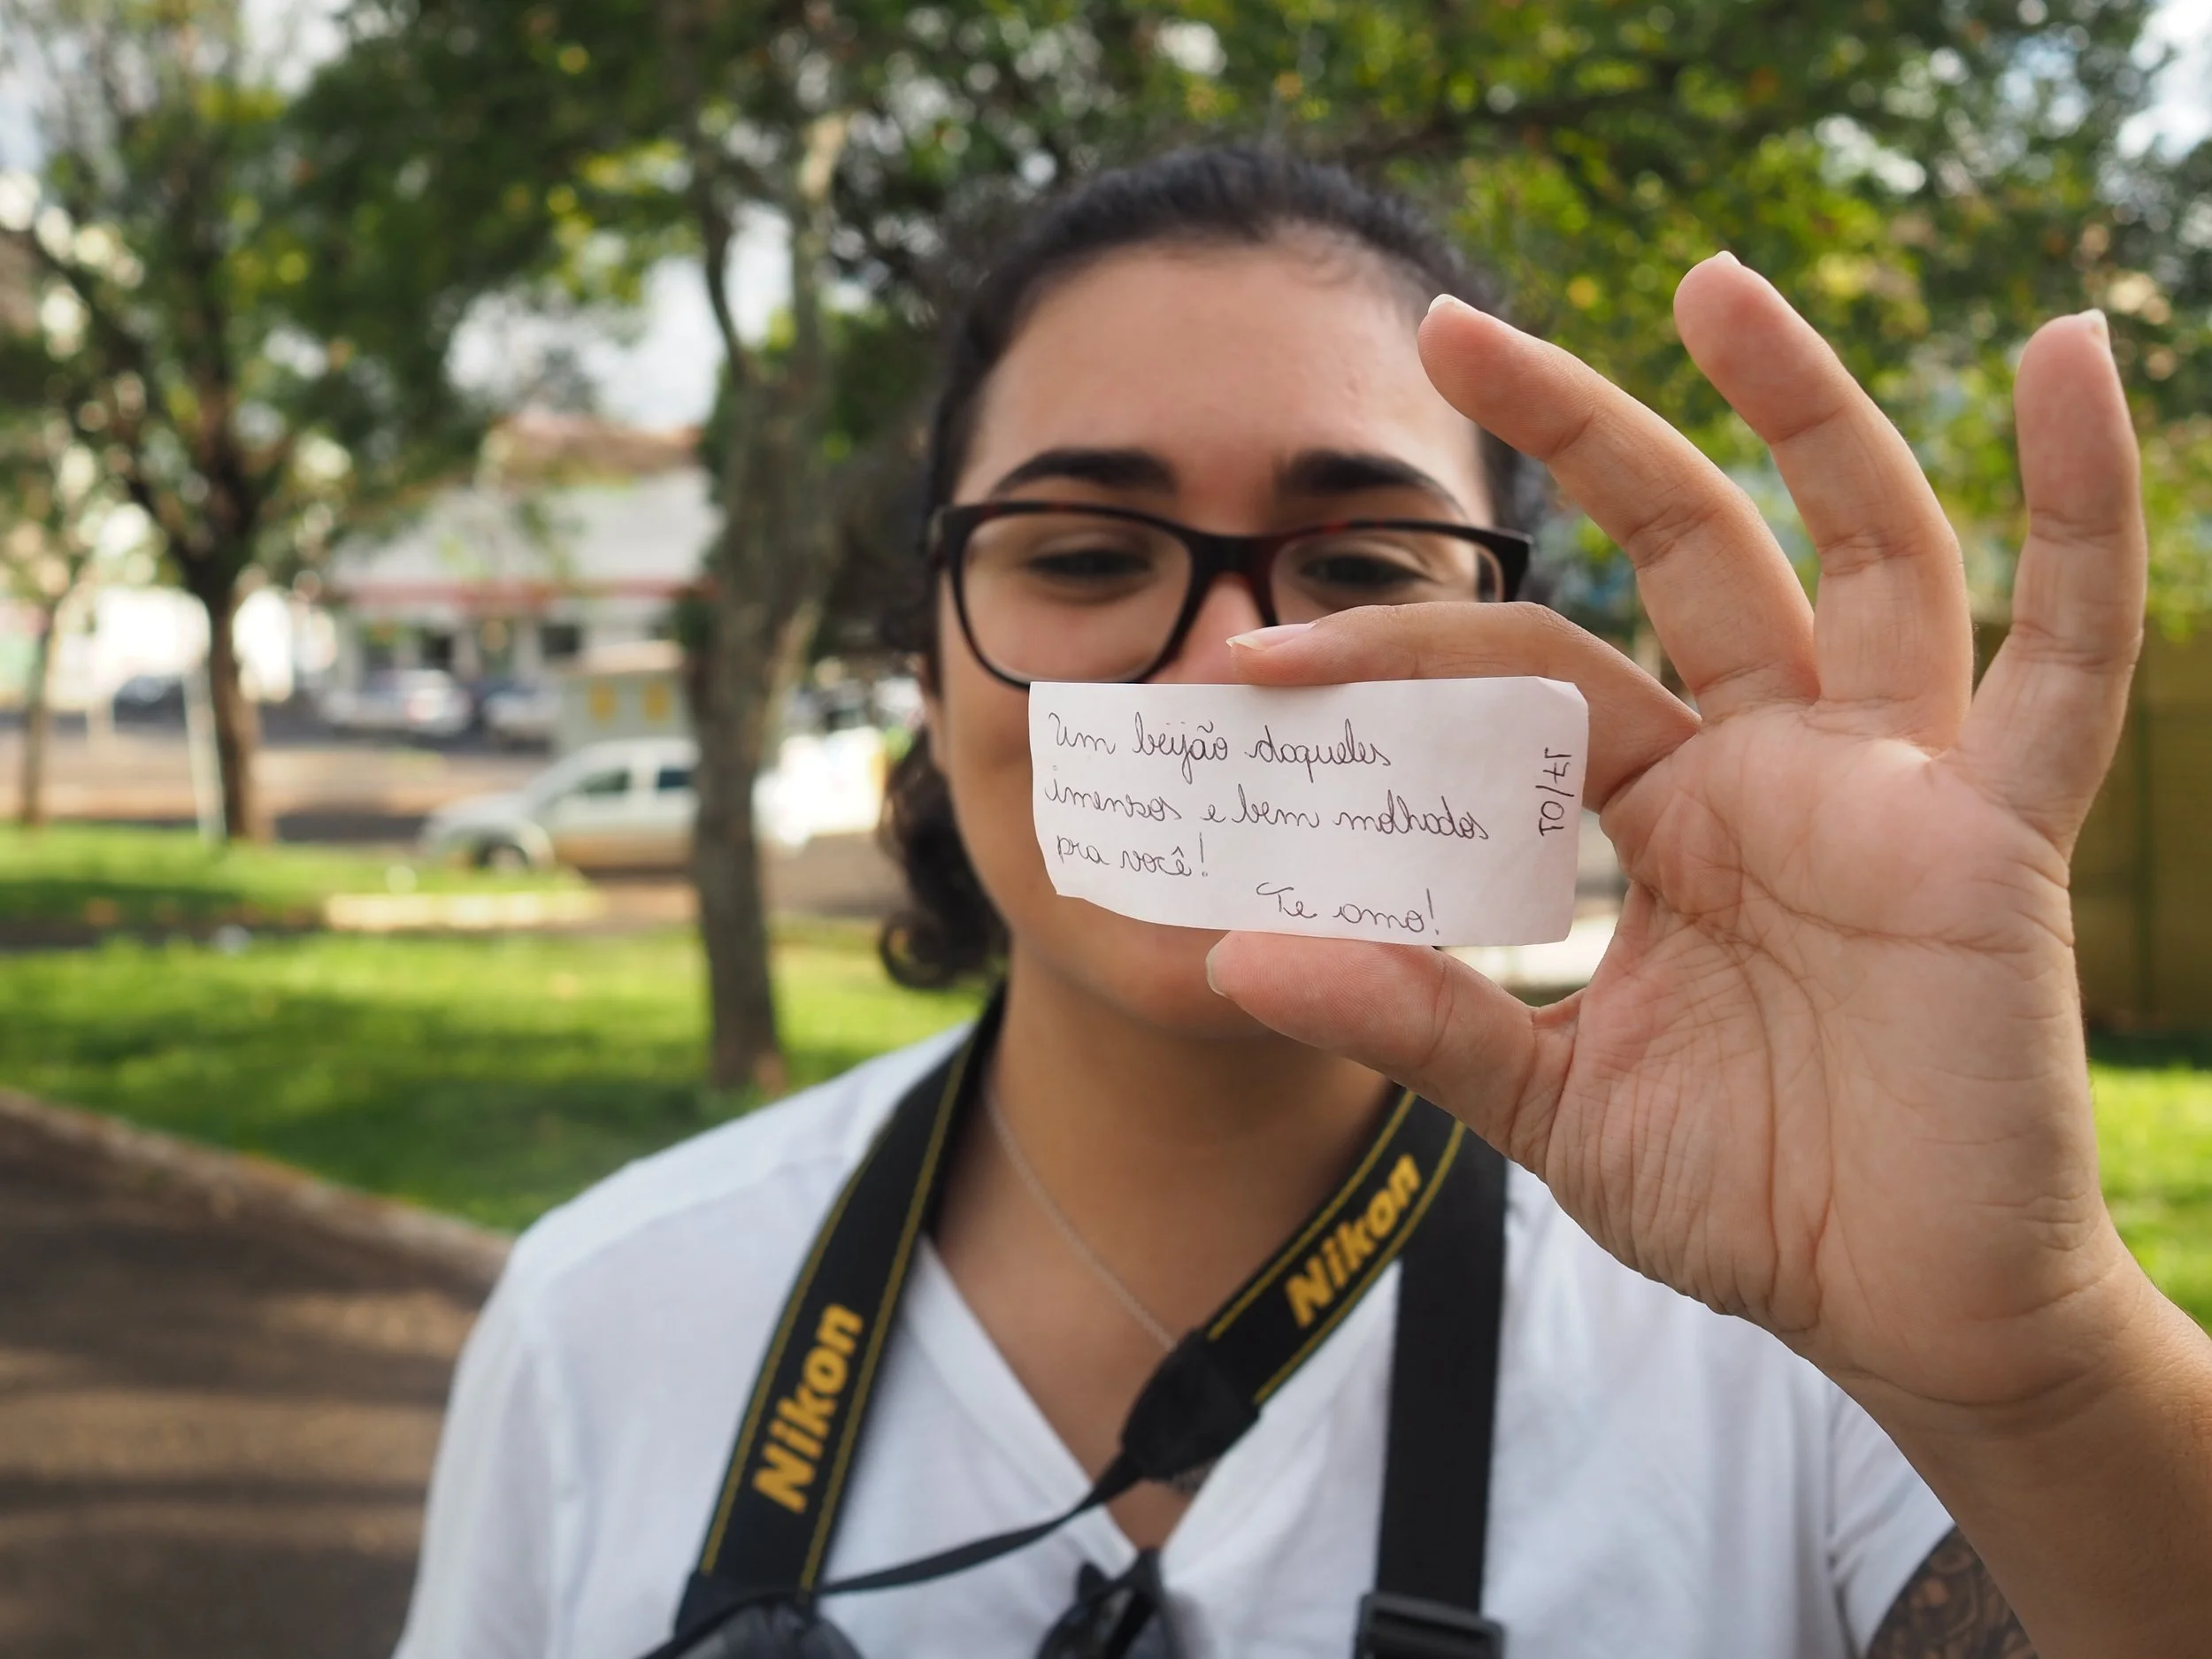 Um beijão daqueles
imensos e bem molhados
pra você!
Te amo!
17/01
Nikon
Nikon